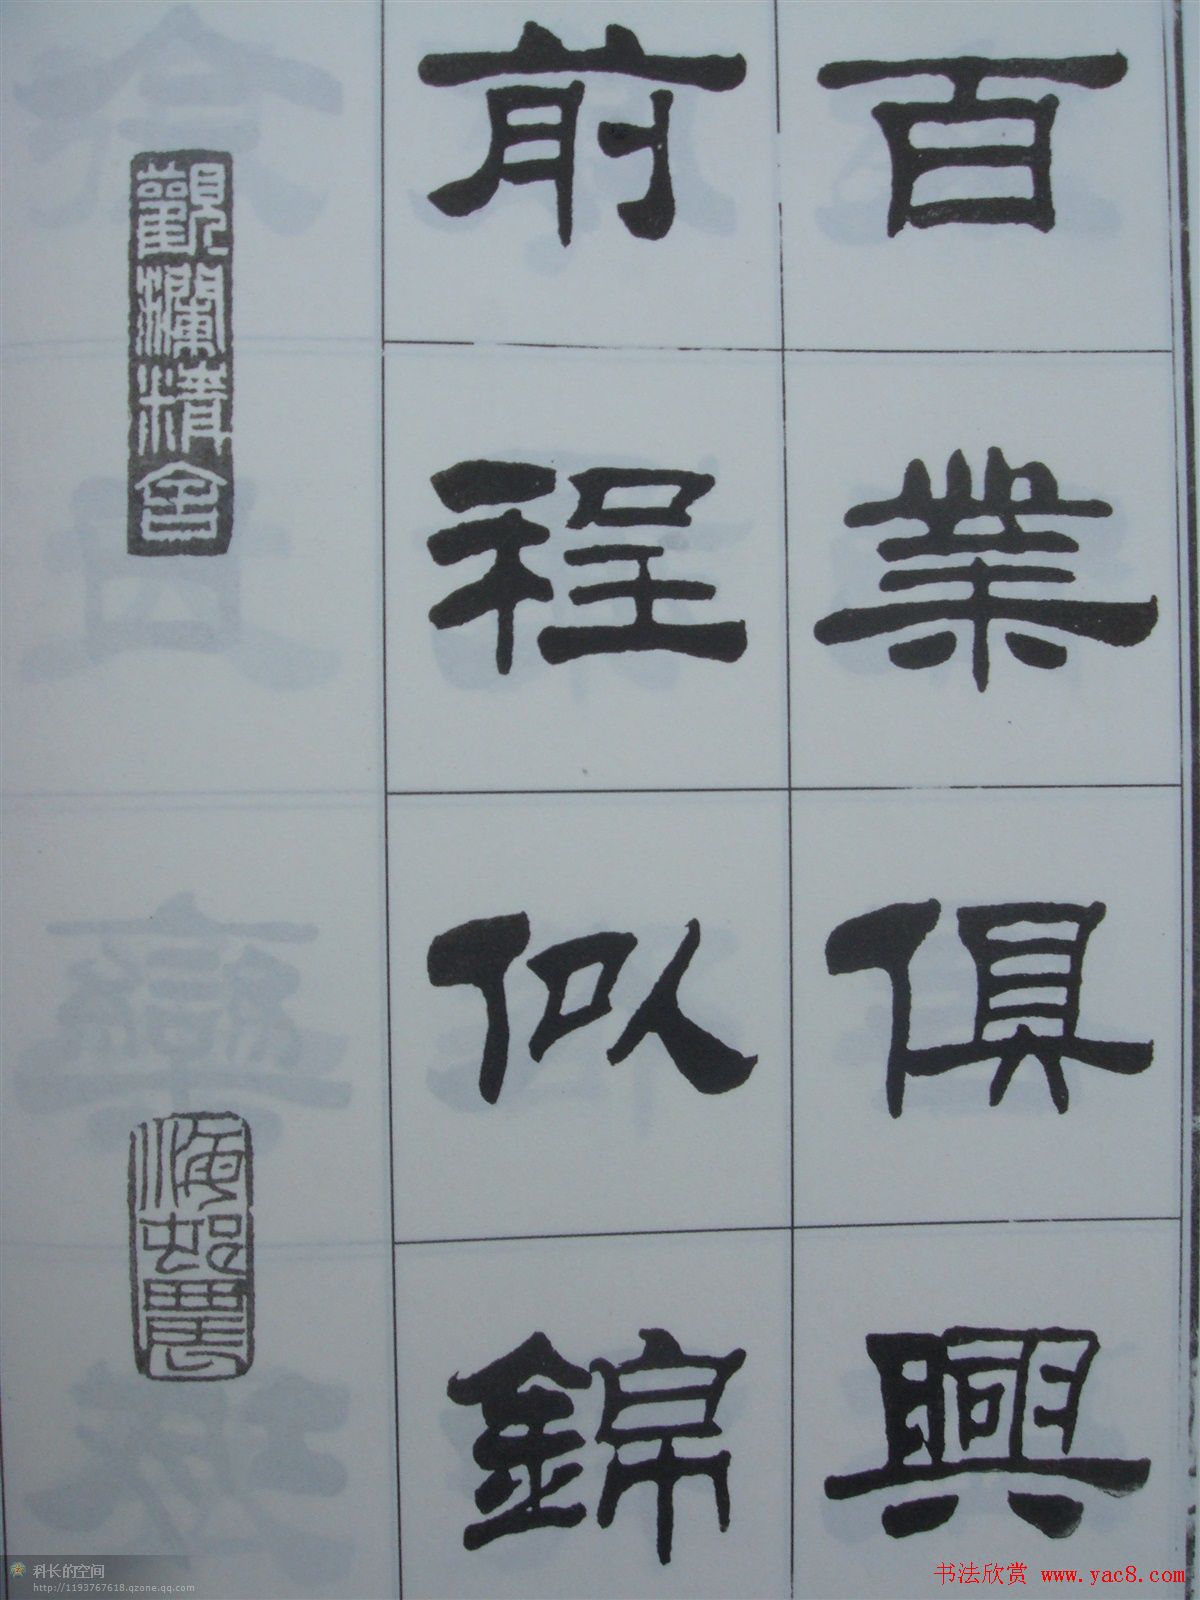 百業俱興
前程似錦
觀瀾精舍
科长的空间
http://1193767618.qzone.qq.com
书法欣赏 www.yac8.com